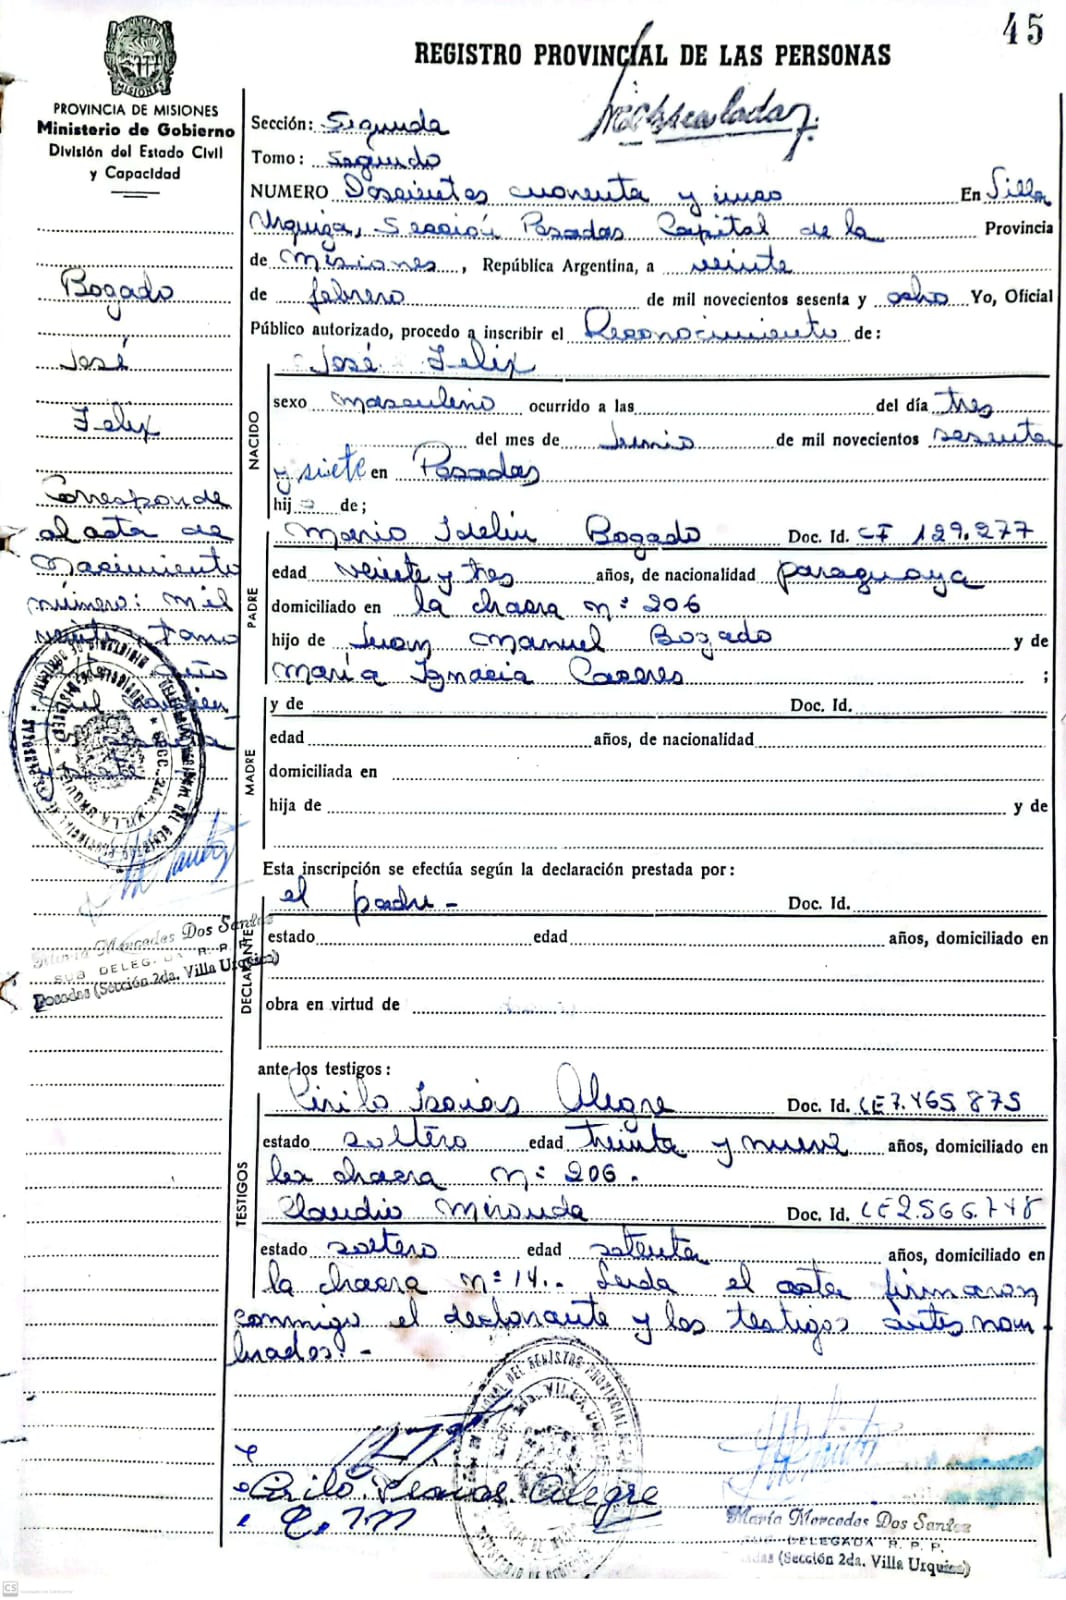 45
REGISTRO PROVINCIAL DE LAS PERSONAS
PROVINCIA DE MISIONES
Ministerio de Gobierno
División del Estado Civil
y Capacidad
Bogado
José
Felix
Corresponde
al acta de
Nacimiento
número: mil
veinte, tomo
año
Sección: Segunda
Tomo: Segundo
NUMERO Doscientos cuarenta y cinco En Villa
Urquiza, Sección Posadas Capital de la Provincia
de Misiones, República Argentina, a veinte
de febrero de mil novecientos sesenta y ocho Yo, Oficial
Público autorizado, procedo a inscribir el Reconocimiento de:
José Felix
NACIDO
sexo masculino ocurrido a las del día tres
del mes de Junio de mil novecientos sesenta
y siete en Posadas
hijo de;
PADRE
Mario Idelin Bogado Doc. Id. CI 129.277
edad veinte y tres años, de nacionalidad paraguaya
domiciliado en la chacra nº 206
hijo de Juan Manuel Bogado y de
María Ignacia Caseres ;
MADRE
y de Doc. Id.
edad años, de nacionalidad
domiciliada en
hija de y de
Esta inscripción se efectúa según la declaración prestada por:
DECLARANTE
el padre - Doc. Id.
estado edad años, domiciliado en
obra en virtud de
ante los testigos:
TESTIGOS
Cirilo Isaias Alegre Doc. Id. LE 7.465.875
estado soltero edad treinta y nueve años, domiciliado en
la chacra nº 206.
Claudio Miranda Doc. Id. LE 2.566.748
estado soltero edad setenta años, domiciliado en
la chacra nº 14.- Leida el acta firmaron
conmigo el declarante y los testigos antes nom
brados.-
Cirilo Isaias Alegre
C. M
María Mercedes Dos Santos
SUB DELEGADA R. P. P.
Posadas (Sección 2da. Villa Urquiza)
María Mercedes Dos Santos
SUB DELEGADA R. P. P.
(Sección 2da. Villa Urquiza)
CS